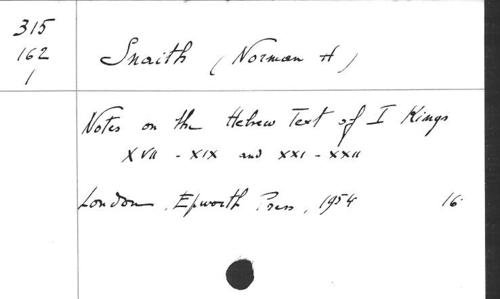 315
162
1
Snaith (Norman H)
Notes on the Hebrew Text of I Kings
XVII - XIX and XXI - XXII
London, Epworth Press, 1954 16